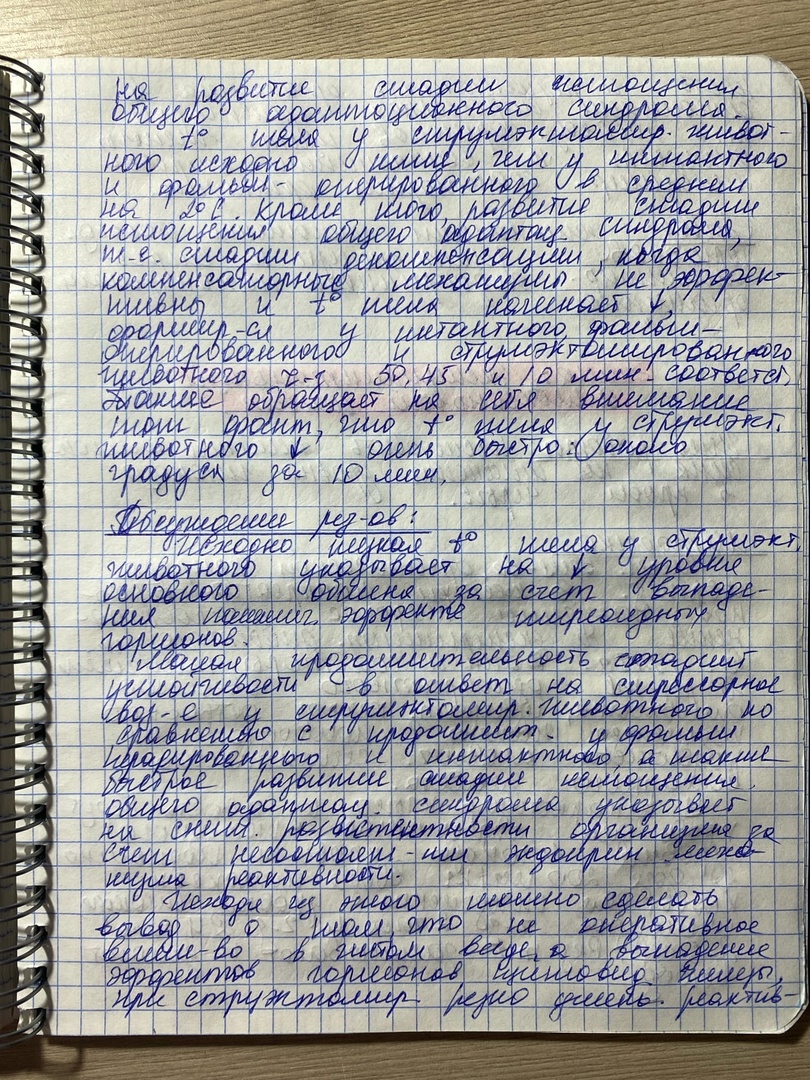 на развитие стадии истощения
общего адаптационного синдрома.
t° тела у струмэктомир. живот-
ного исходно ниже, чем у интактного
и фальш-оперированного в среднем
на 2°С. Кроме того, развитие стадии
истощения общего адаптац. синдрома,
т.е. стадии декомпенсации, когда
компенсаторные механизмы не эффек-
тивны и t° тела начинает ↓,
формир-ся у интактного, фальш-
оперированного и струмэктомированного
животного ч-з 50, 45 и 10 мин. соответст.
обращает на себя внимание
тот факт, что t° тела у струмэкт.
животного ↓ очень быстро: около
градуса за 10 мин.
Обсуждение рез-ов:
Исходно низкая t° тела у струмэкт.
животного указывает на ↓ уровня
основного обмена за счет выпаде-
ния эффекта тиреоидных
гормонов.
Малая продолжительность стадии
устойчивости в ответ на стрессорное
воз-е у струмэктомир. животного по
сравнению с продолжит. у фальш
и интактного, а также
быстрое развитие стадии истощения
общего адаптац. синдрома указывает
на сниж. резистентности организма за
счет несостоят-ти эндокрин. меха-
низма реактивности.
Исходя из этого можно сделать
вывод о том, что не оперативное
вмеш-во в чистом виде, а выпадение
эффектов гормонов щитовид. железы,
при струмэктомир. резко реактив-